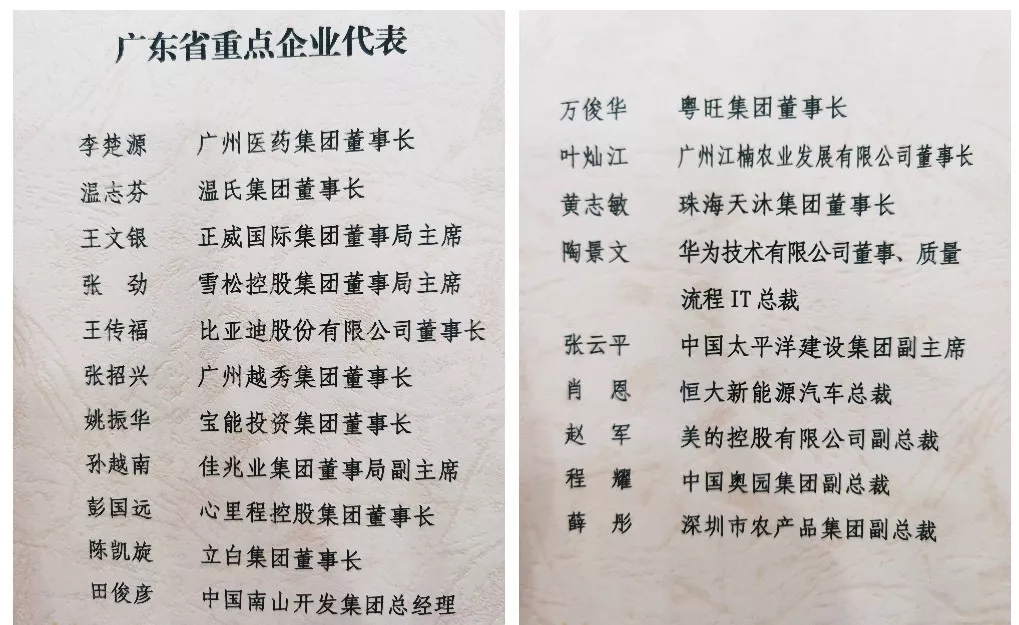 广东省重点企业代表
李楚源 广州医药集团董事长
温志芬 温氏集团董事长
王文银 正威国际集团董事局主席
张 劲 雪松控股集团董事局主席
王传福 比亚迪股份有限公司董事长
张招兴 广州越秀集团董事长
姚振华 宝能投资集团董事长
孙越南 佳兆业集团董事局副主席
彭国远 心里程控股集团董事长
陈凯旋 立白集团董事长
田俊彦 中国南山开发集团总经理
万俊华 粤旺集团董事长
叶灿江 广州江楠农业发展有限公司董事长
黄志敏 珠海天沐集团董事长
陶景文 华为技术有限公司董事、质量
流程IT总裁
张云平 中国太平洋建设集团副主席
肖 恩 恒大新能源汽车总裁
赵 军 美的控股有限公司副总裁
程 耀 中国奥园集团副总裁
薛 彤 深圳市农产品集团副总裁